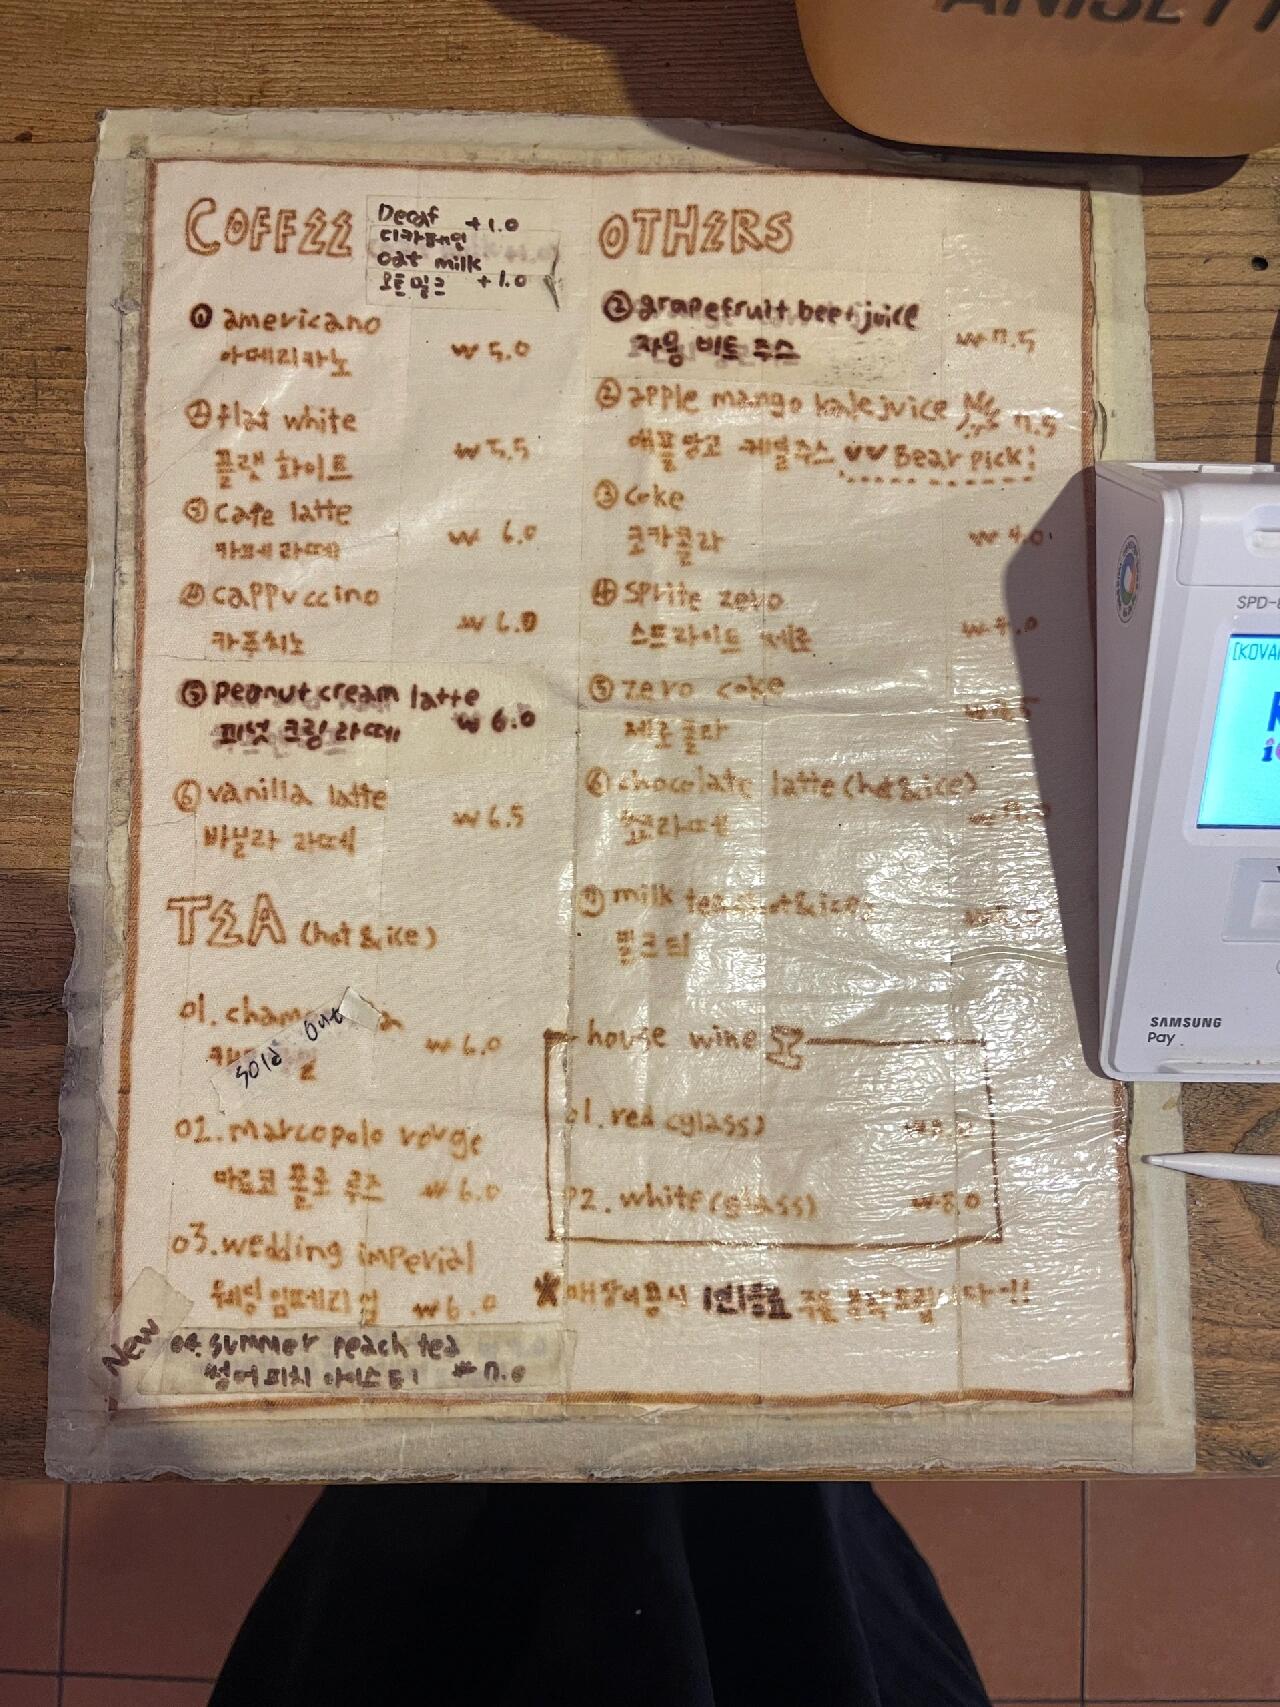 COFFEE
Decaf +1.0
디카페인
oat milk
오트밀크 +1.0
① americano
아메리카노 ₩ 5.0
② flat white
플랫 화이트 ₩ 5.5
③ cafe latte
카페라떼 ₩ 6.0
④ cappuccino
카푸치노 ₩ 6.0
⑤ peanut cream latte
피넛 크림 라떼 ₩ 6.0
⑥ vanilla latte
바닐라 라떼 ₩ 6.5
TEA (hot & ice)
01.
sold out
₩ 6.0
02. marcopolo rouge
마르코 폴로 루즈 ₩ 6.0
03. wedding imperial
웨딩 임페리얼 ₩ 6.0
New
04. summer peach tea
썸머 피치 아이스티 ₩ 7.0
OTHERS
① grapefruit beet juice
자몽 비트 주스 ₩ 7.5
② apple mango kale juice 7.5
애플망고 케일주스 Bear pick!
③ coke
코카콜라 ₩ 4.0
④ sprite zero
스프라이트 제로
⑤ zero coke
제로콜라
⑥ chocolate latte (hot & ice)
초코라떼
⑦ milk tea (hot & ice)
밀크티
house wine
01. red (glass)
02. white (glass) ₩ 8.0
매장이용시 1인1음료 주문 부탁드립니다!!
SPD-
[KOVA
SAMSUNG
Pay